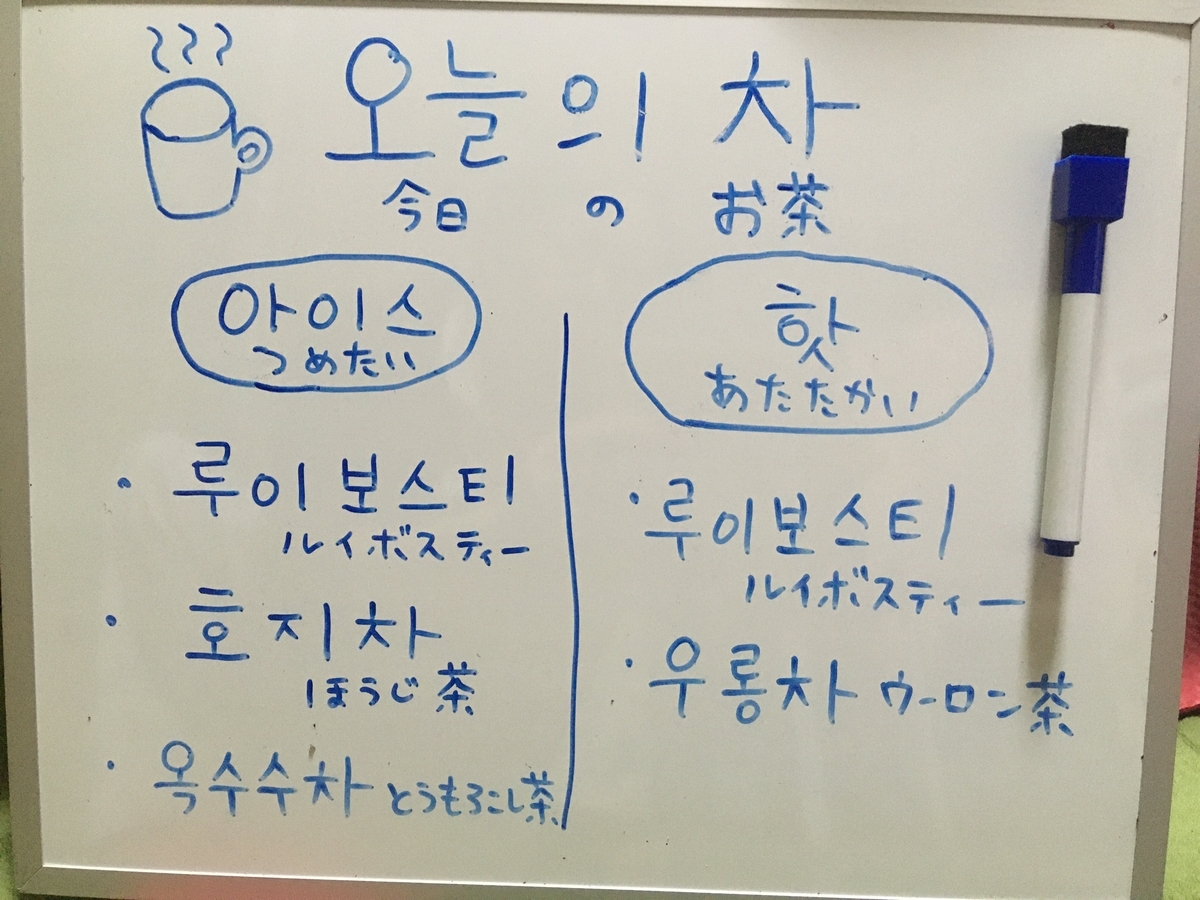 오늘의 차
今日 の お茶
아이스
つめたい
・루이보스티
ルイボスティー
・호지차
ほうじ茶
・옥수수차 とうもろこし茶
핫
あたたかい
・루이보스티
ルイボスティー
・우롱차 ウーロン茶